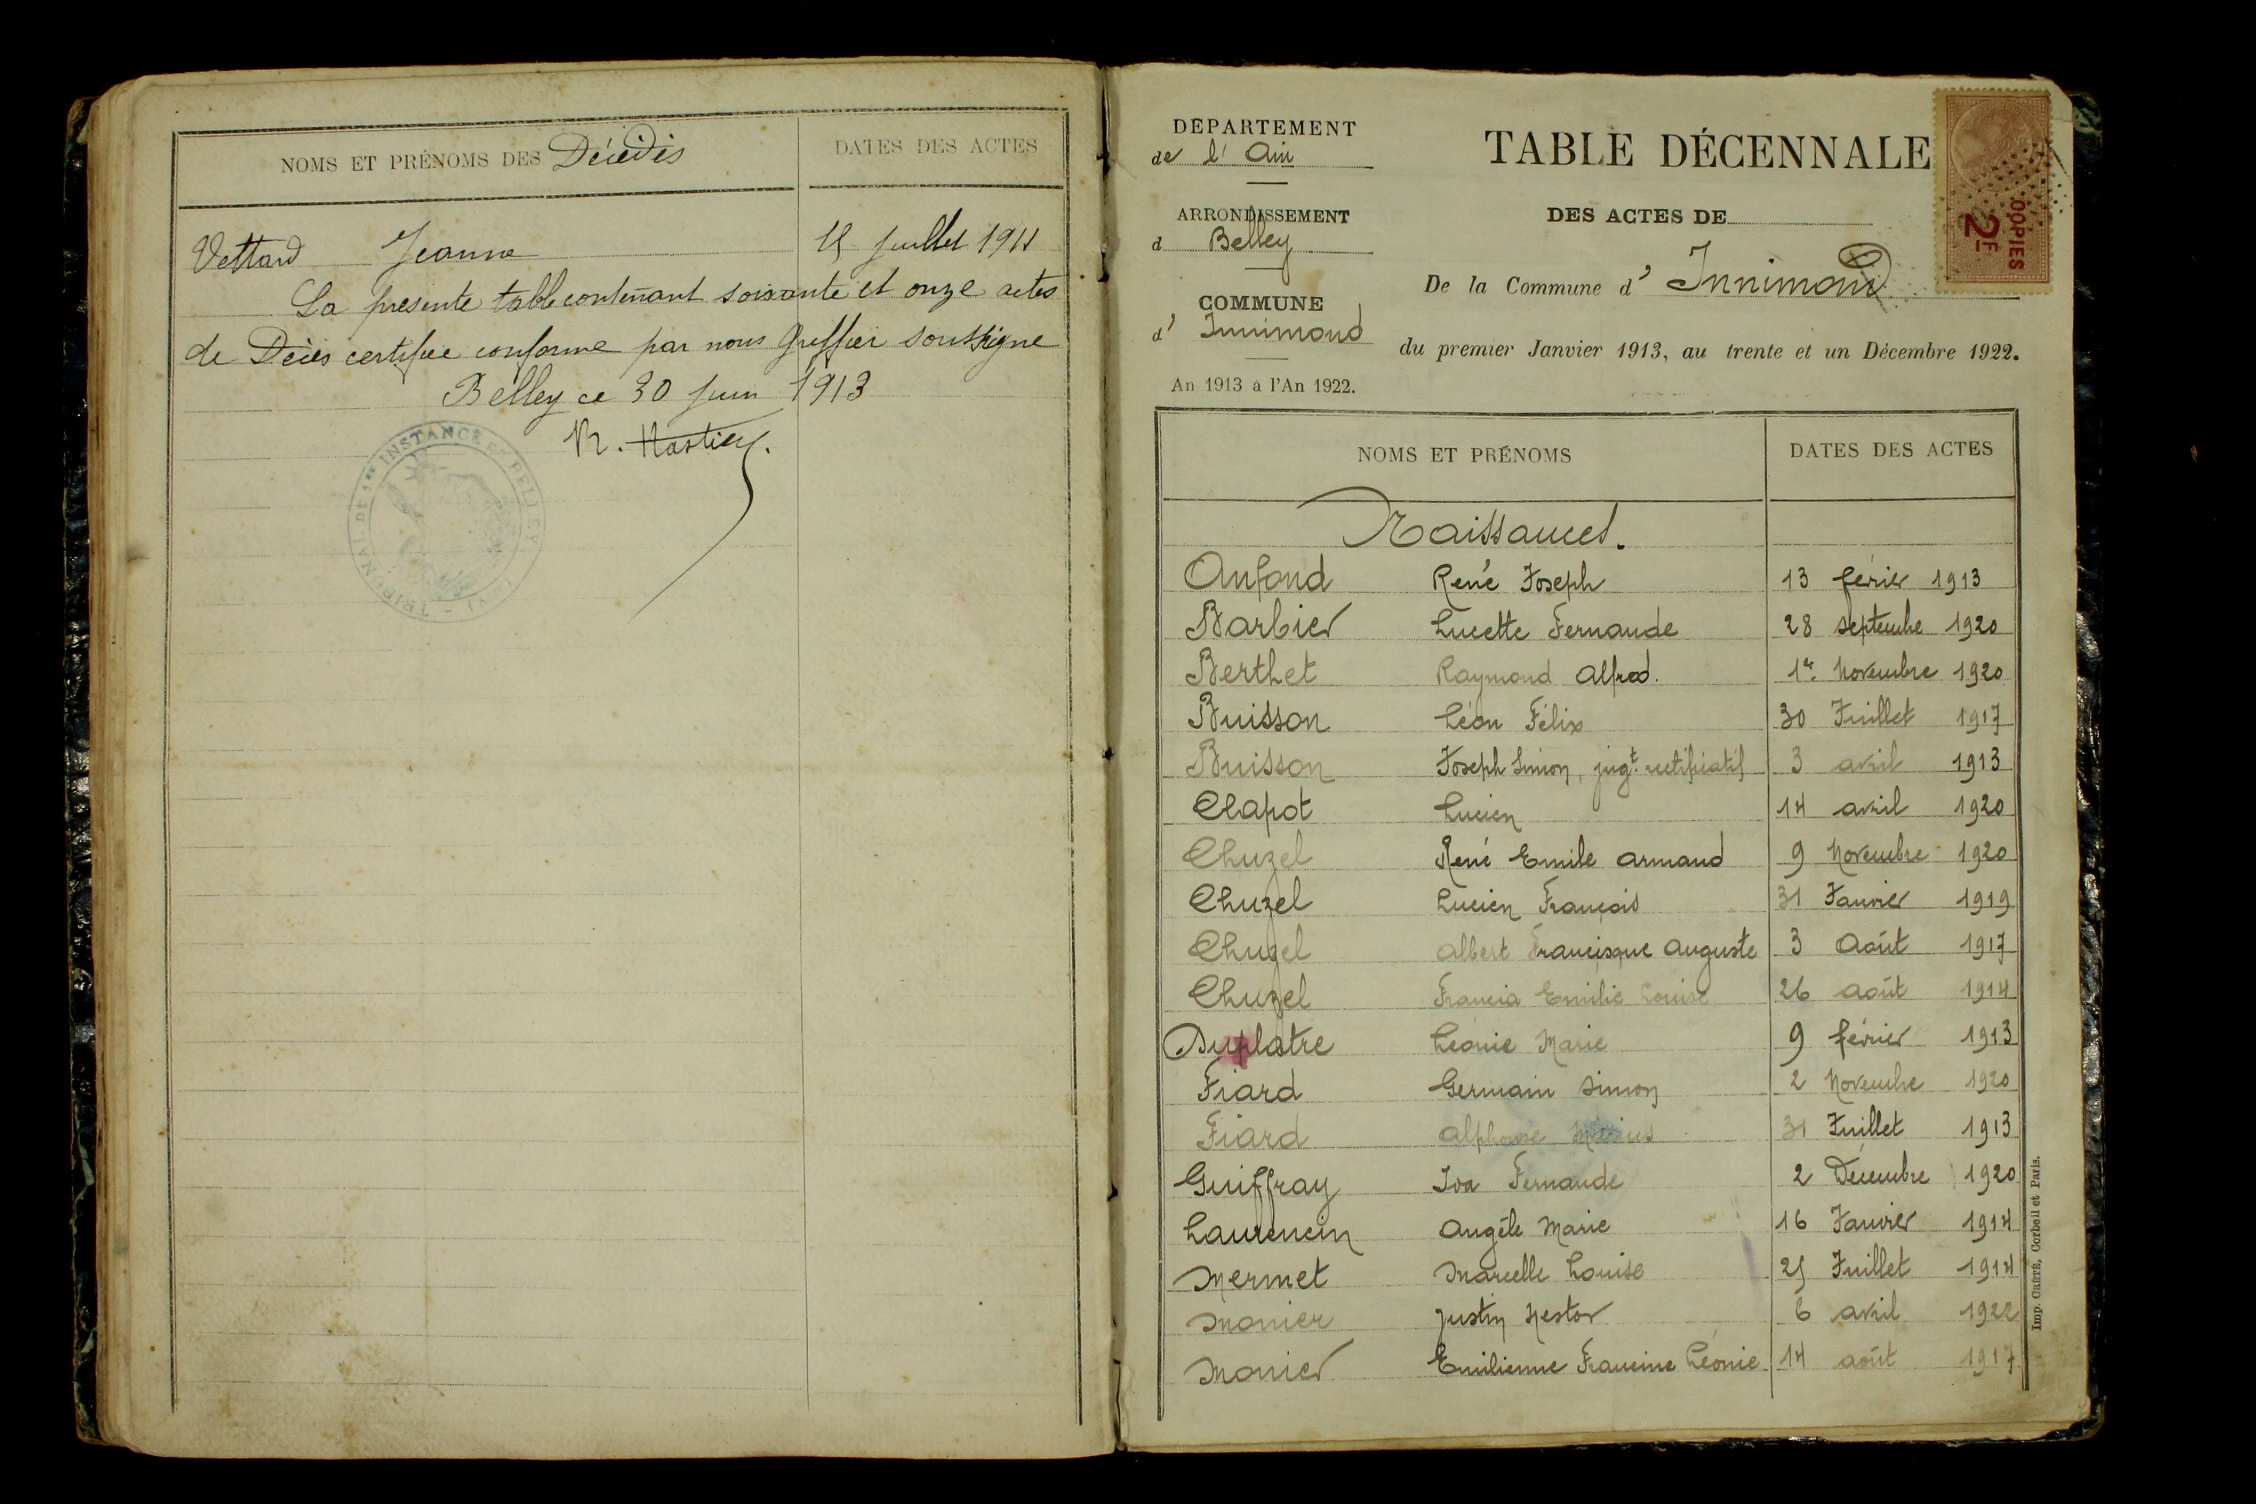 NOMS ET PRÉNOMS DES Décédés
DATES DES ACTES
Vettard Jeanne 15 Juillet 1911
La presente table contenant soixante et onze actes
de Décès certifiée conforme par nous Greffier soussigné
Belley ce 30 Juin 1913
TRIBUNAL DE 1ère INSTANCE DE BELLEY
DEPARTEMENT
de l'Ain
ARRONDISSEMENT
d Belley
COMMUNE
d' Innimond
An 1913 à l'An 1922.
TABLE DÉCENNALE
DES ACTES DE
De la Commune d' Innimond
du premier Janvier 1913, au trente et un Décembre 1922.
COPIES
2F
NOMS ET PRÉNOMS DATES DES ACTES
Naissances.
Anfond René Joseph 13 février 1913
Barbier Lucette Fernande 28 septembre 1920
Berthet Raymond Alfred. 1er Novembre 1920
Buisson Léon Félix 30 Juillet 1917
Buisson Joseph Simon, jugt rectificatif 3 avril 1913
Clapot Lucien 14 avril 1920
Chuzel René Emile Armand 9 Novembre 1920
Chuzel Lucien François 31 Janvier 1919
Chuzel Albert Francisque Auguste 3 Août 1917
Chuzel Francia Emilie Louise 26 août 1914
Duplatre Léonie Marie 9 février 1913
Fiard Germain Simon 2 Novembre 1920
Fiard Alphonse Marius 31 Juillet 1913
Guiffray Iva Fernande 2 Décembre 1920
Laurencin Angèle Marie 16 Janvier 1914
Mermet Marcelle Louise 25 Juillet 1914
Monier Justin Nestor 6 avril 1922
Monier Emilienne Francine Léonie 14 août 1917
Imp. Crété, Corbeil et Paris.